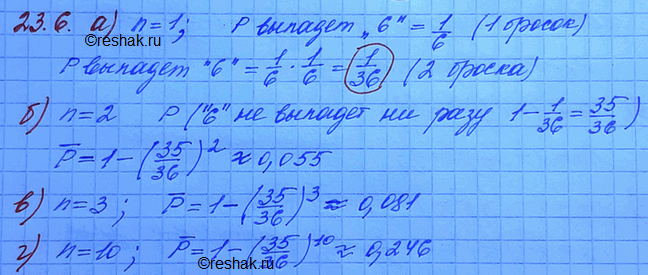 23.6. а) n=1; Р выпадет „6" = 1/6 (1 бросок)
©reshak.ru
Р выпадет "6" = 1/6 · 1/6 = 1/36 (2 броска)
б) n=2 Р ("6" не выпадет ни разу 1 - 1/36 = 35/36)
P̅ = 1 - (35/36)² ≈ 0,055
в) n=3; P̅ = 1 - (35/36)³ ≈ 0,081
г) n=10; P̅ = 1 - (35/36)¹⁰ ≈ 0,246
©reshak.ru